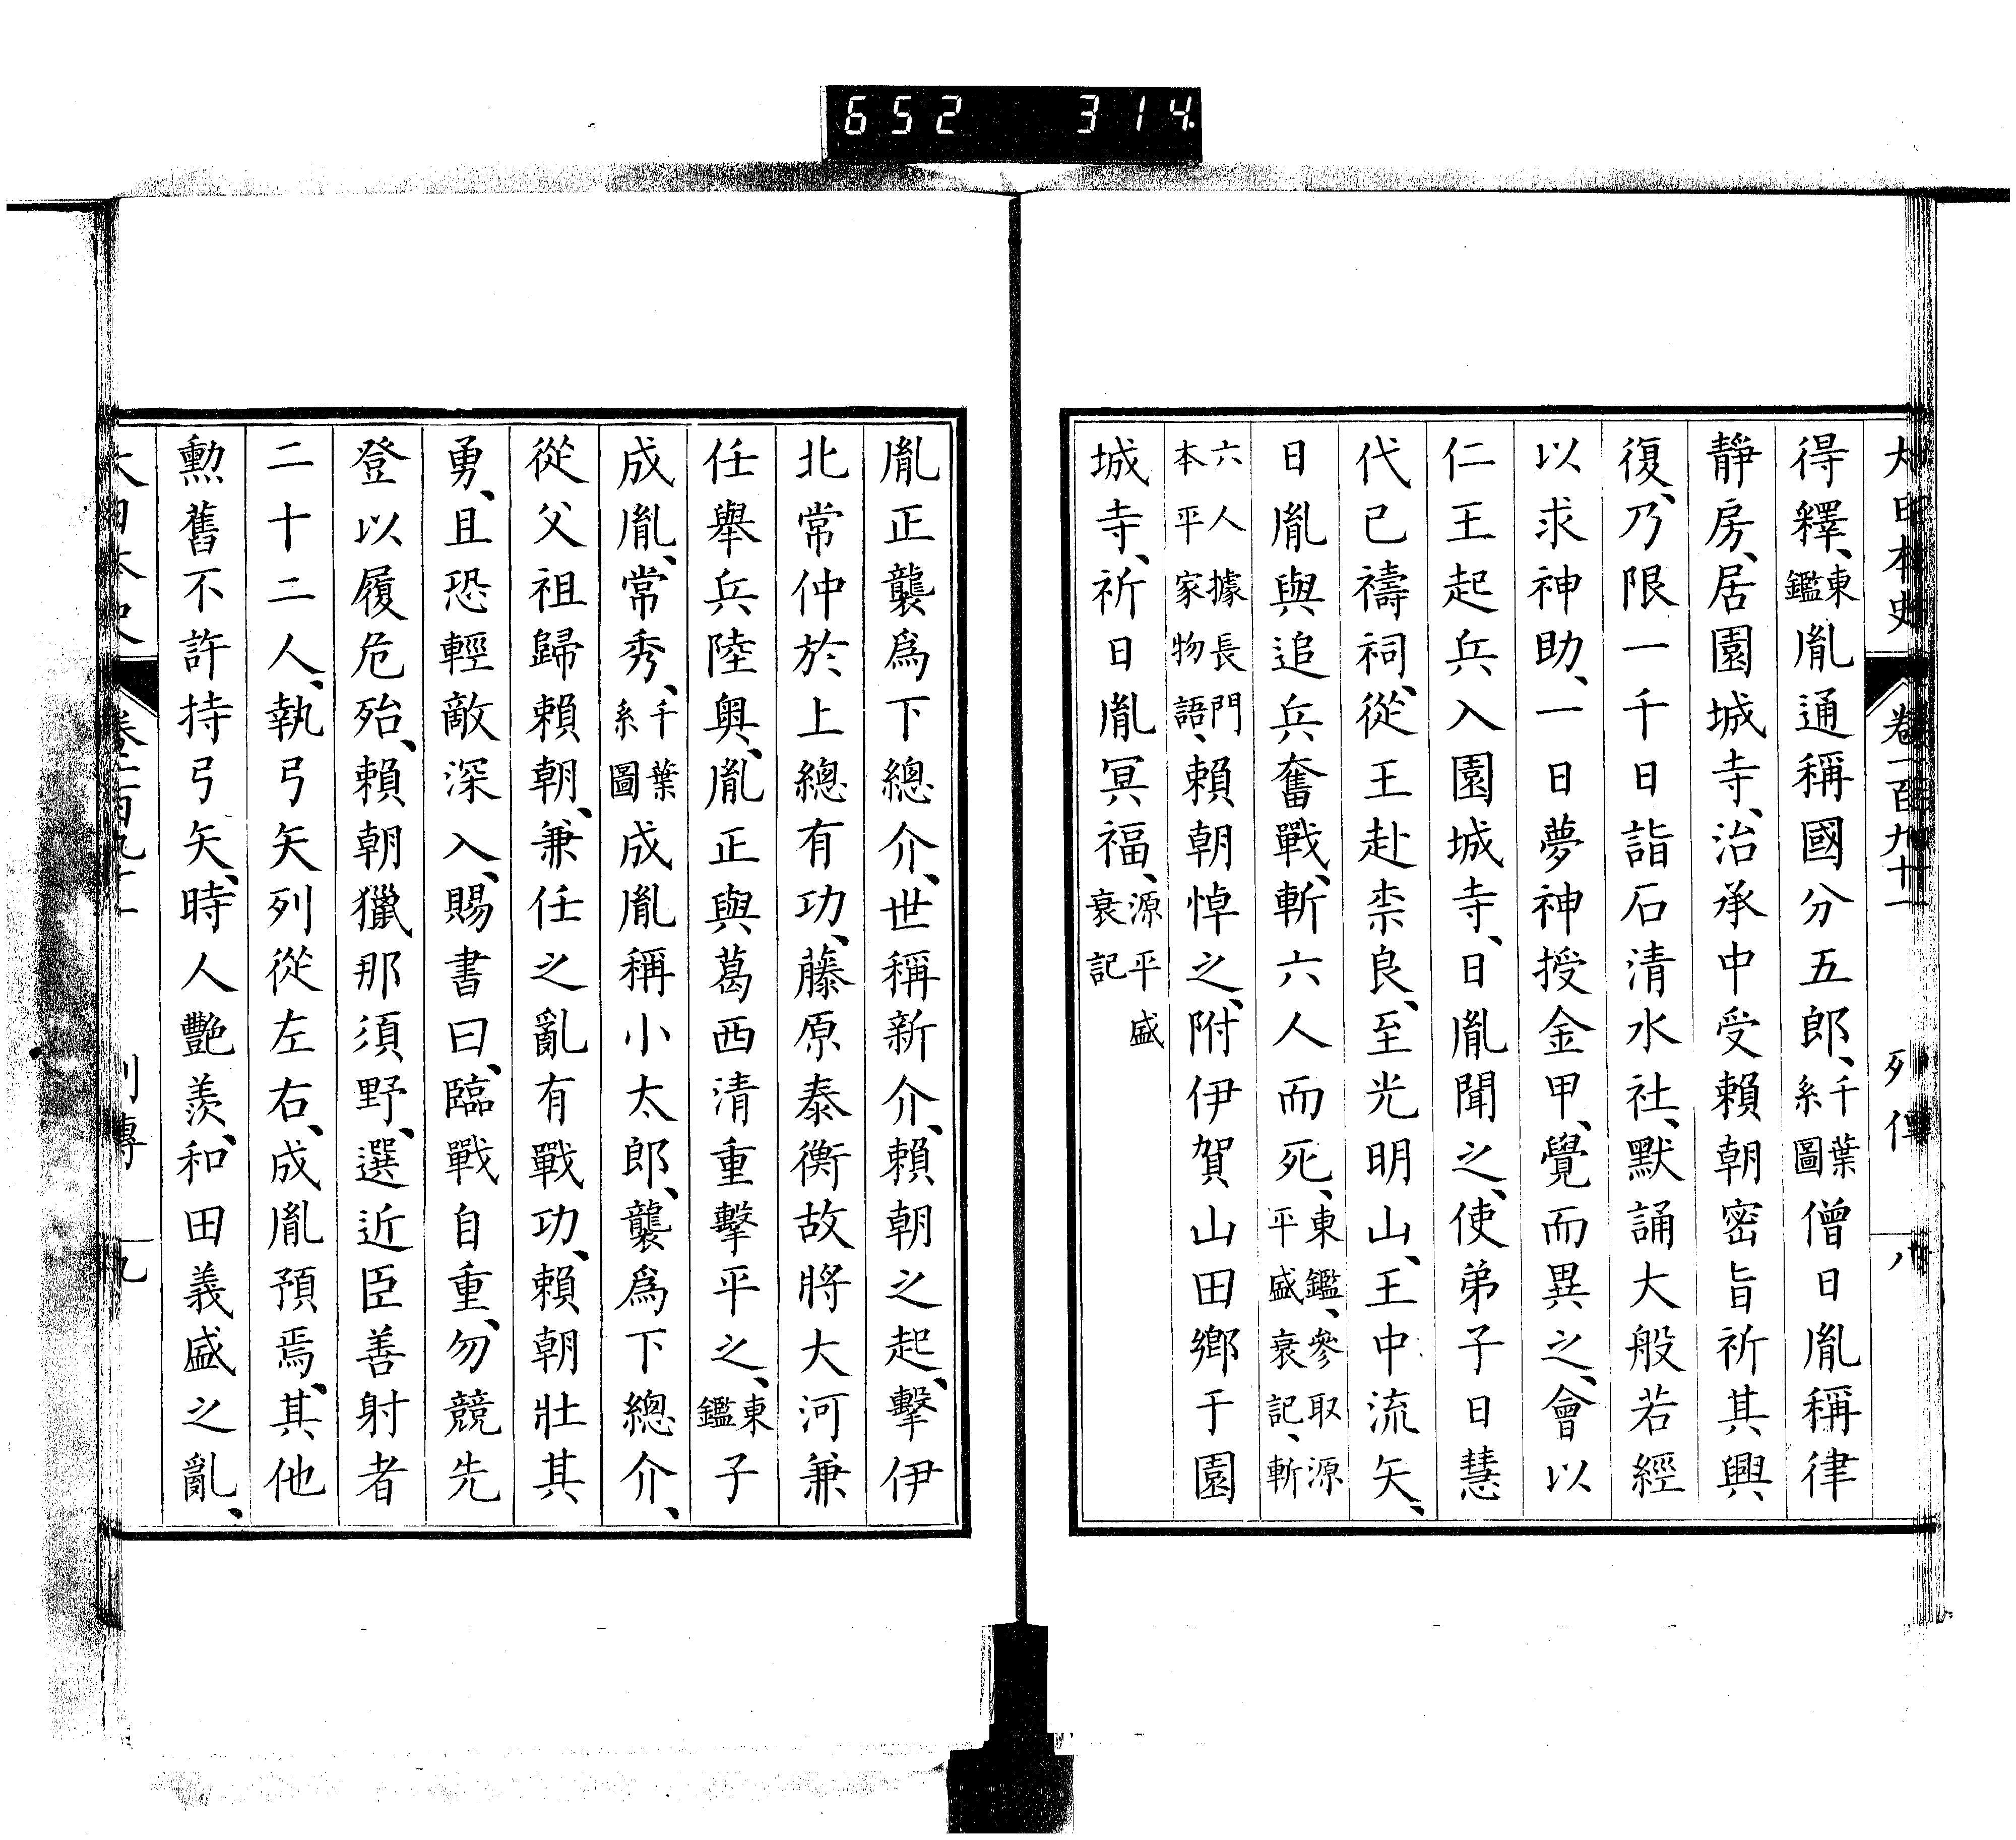 652 314.
大日本史 卷一百九十一 列傳 八
得釋、東鑑胤通稱國分五郎、千葉系圖僧日胤稱律
靜房、居園城寺、治承中受賴朝密旨祈其興
復、乃限一千日詣石清水社、默誦大般若經
以求神助、一日夢神授金甲、覺而異之、會以
仁王起兵入園城寺、日胤聞之、使弟子日慧
代已禱祠、從王赴柰良、至光明山、王中流矢、
日胤與追兵奮戰、斬六人而死、東鑑、參取源平盛衰記、斬
六人據長門本平家物語、賴朝悼之、附伊賀山田鄉于園
城寺、祈日胤冥福、源平盛衰記
胤正襲爲下總介、世稱新介、賴朝之起、擊伊
北常仲於上總有功、藤原泰衡故將大河兼
任舉兵陸奧、胤正與葛西清重擊平之、東鑑子
成胤、常秀、千葉系圖成胤稱小太郎、襲爲下總介、
從父祖歸賴朝、兼任之亂有戰功、賴朝壯其
勇、且恐輕敵深入、賜書曰、臨戰自重、勿競先
登以履危殆、賴朝獵那須野、選近臣善射者
二十二人、執弓矢列從左右、成胤預焉、其他
勳舊不許持弓矢、時人艷羨、和田義盛之亂、
大日本史 卷一百九十一 列傳 九